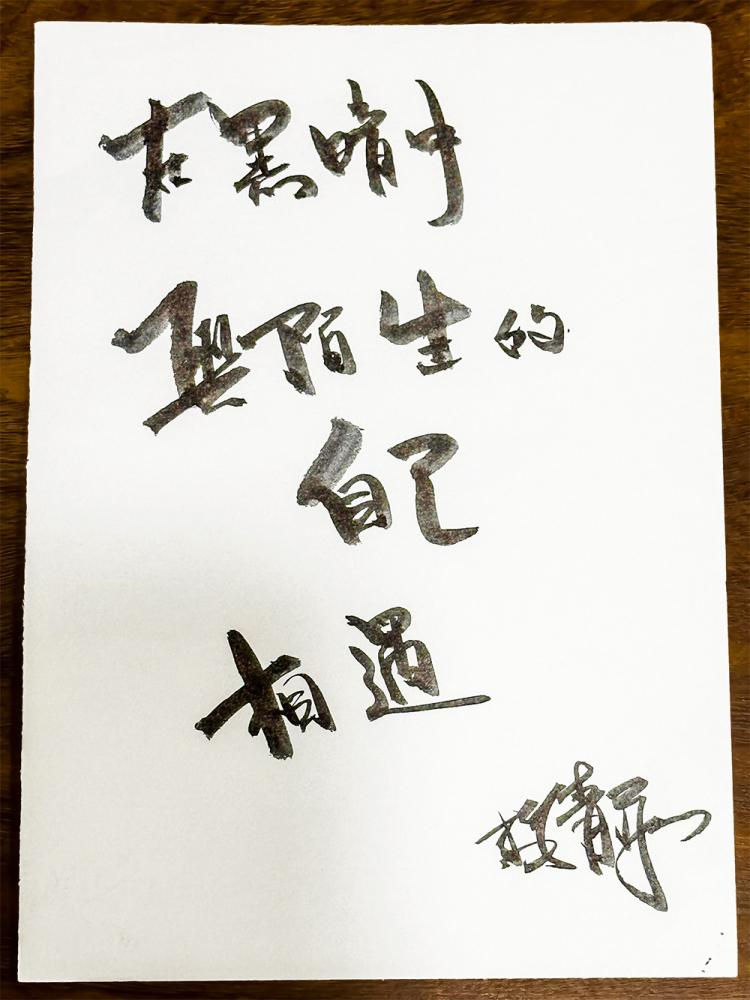 在黑暗中
與陌生的
自己
相遇
静